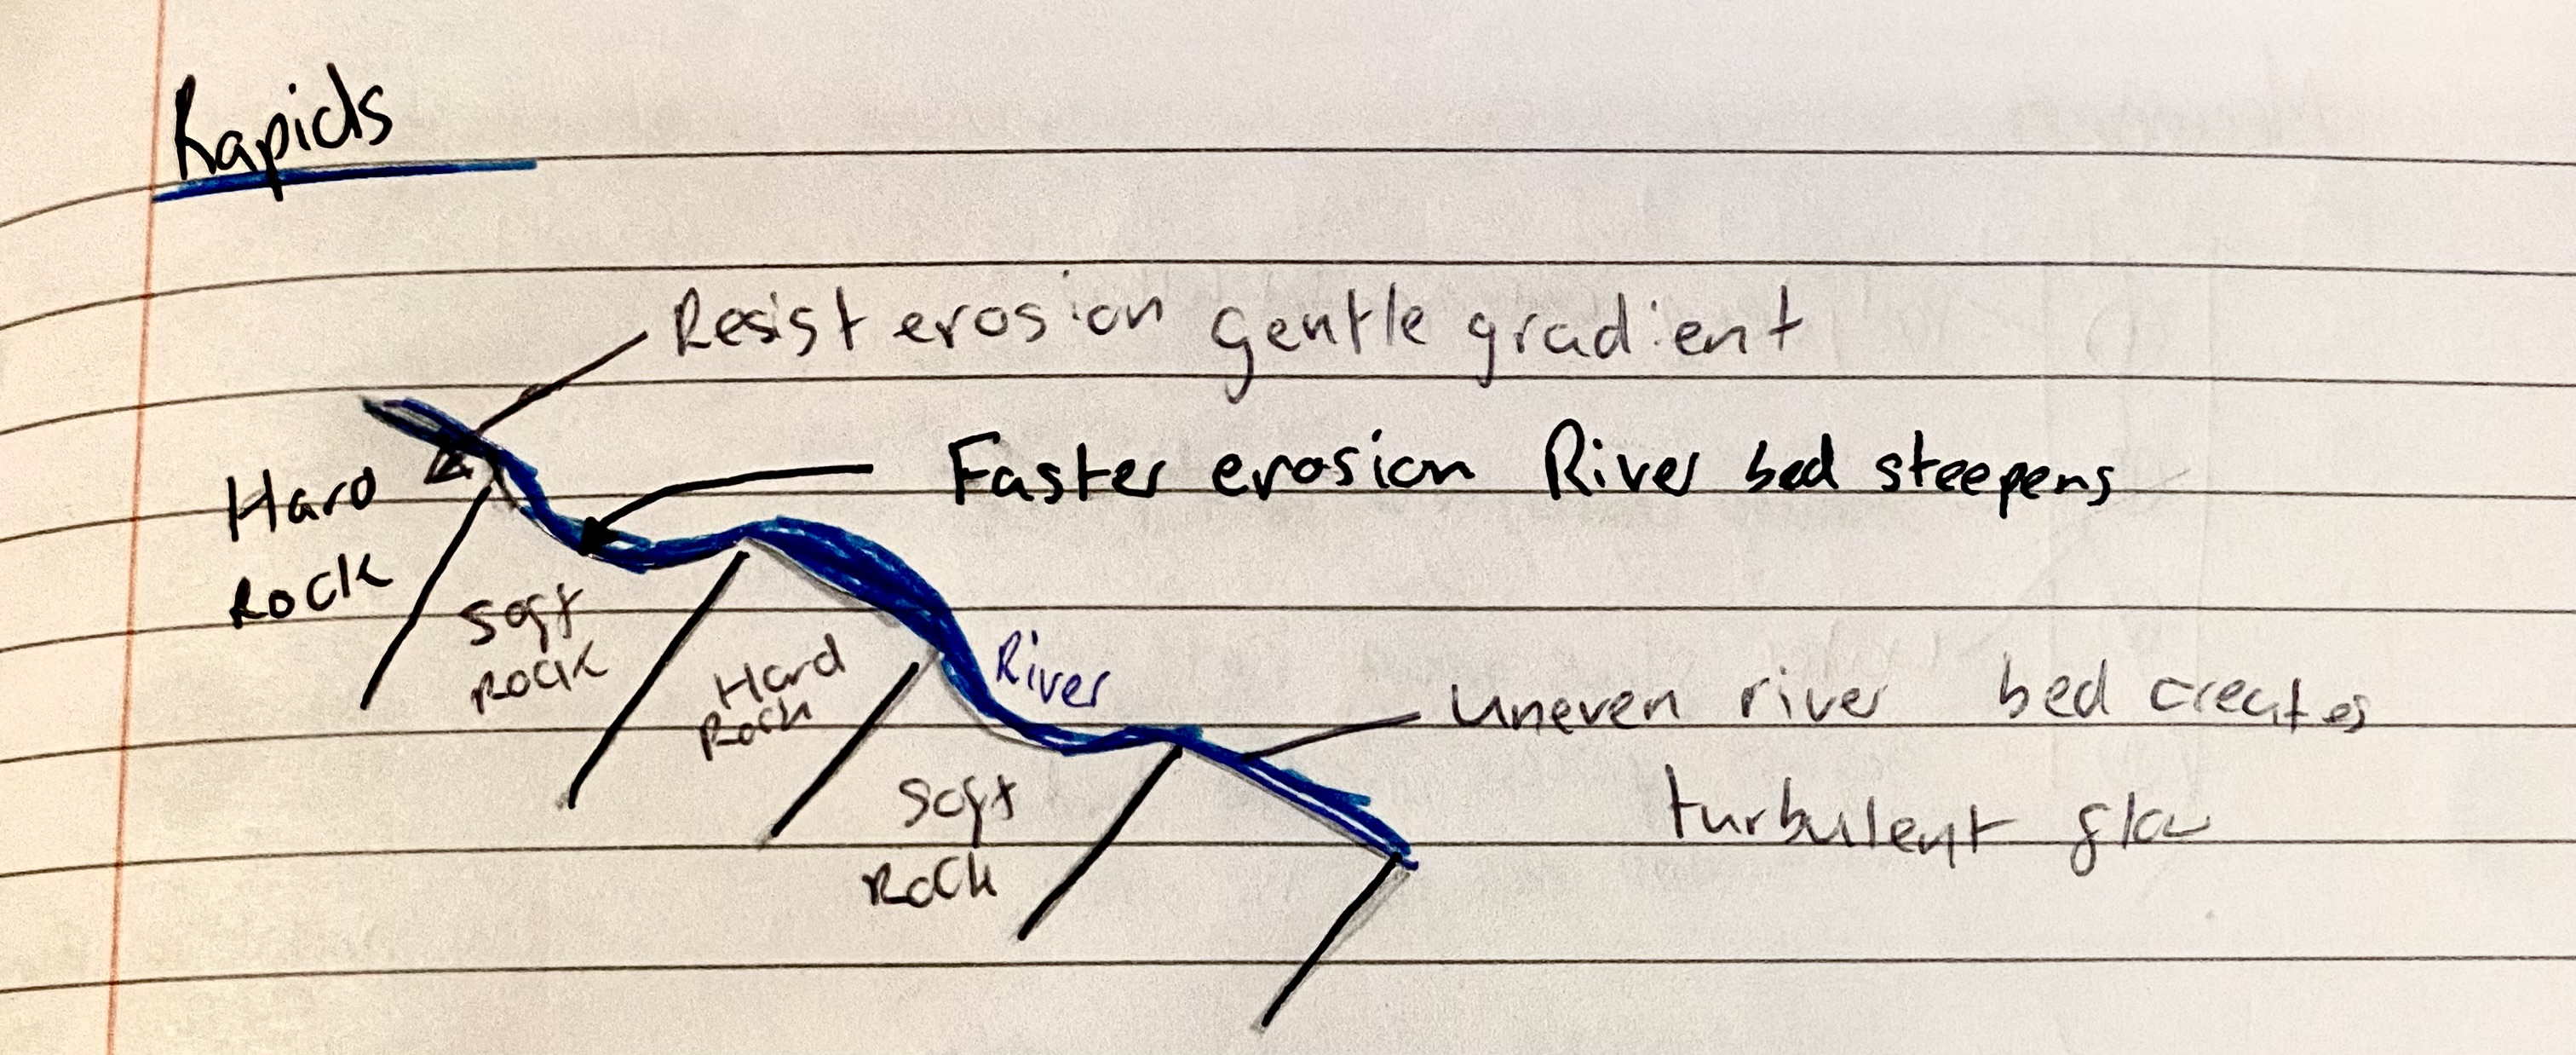 Rapids
Resist erosion gentle gradient
Faster erosion River bed steepens
Hard
Rock
Soft
Rock
Hard
Rock
River
Uneven river bed creates
turbulent flow
Soft
Rock